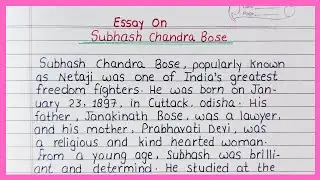 Essay On
Subhash Chandra Bose
Subhash Chandra Bose, popularly known
as Netaji was one of India's greatest
freedom fighters. He was born on Jan-
uary 23, 1897, in Cuttack, odisha. His
father, Janakinath Bose, was a lawyer,
and his mother, Prabhavati Devi, was
a religious and kind hearted woman.
From a young age, Subhash was brilli-
ant and determind. He studied at the